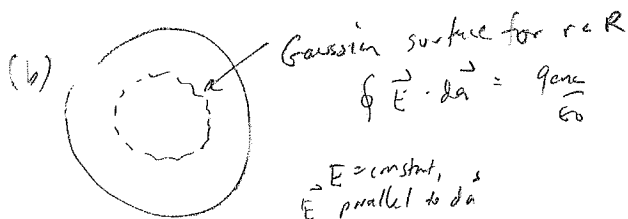 (b)
Gaussian surface for r<R
∮ E⃗ · da⃗ = qenc/ε0
E = constant,
E⃗ parallel to da⃗